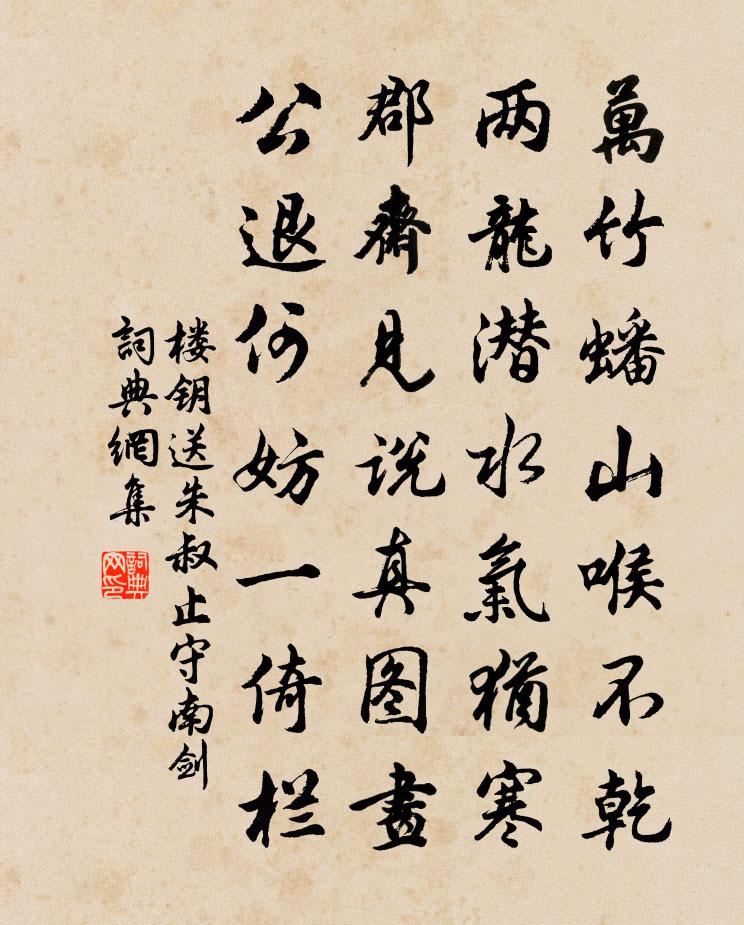 萬竹蟠山喉不乾
两龍潜水氣猶寒
郡齋見説真图畫
公退何妨一倚栏
楼钥送朱叔止守南剑
詞典網集
詞典网印